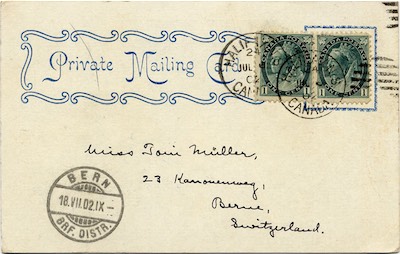 Private Mailing Card
HALIFAX
CANADA
CANADA
1 1
1 1
Miss Toni Müller,
23 Kanonenweg,
Berne,
Switzerland.
BERN
18.VII.02.IX-
BRF. DISTR.